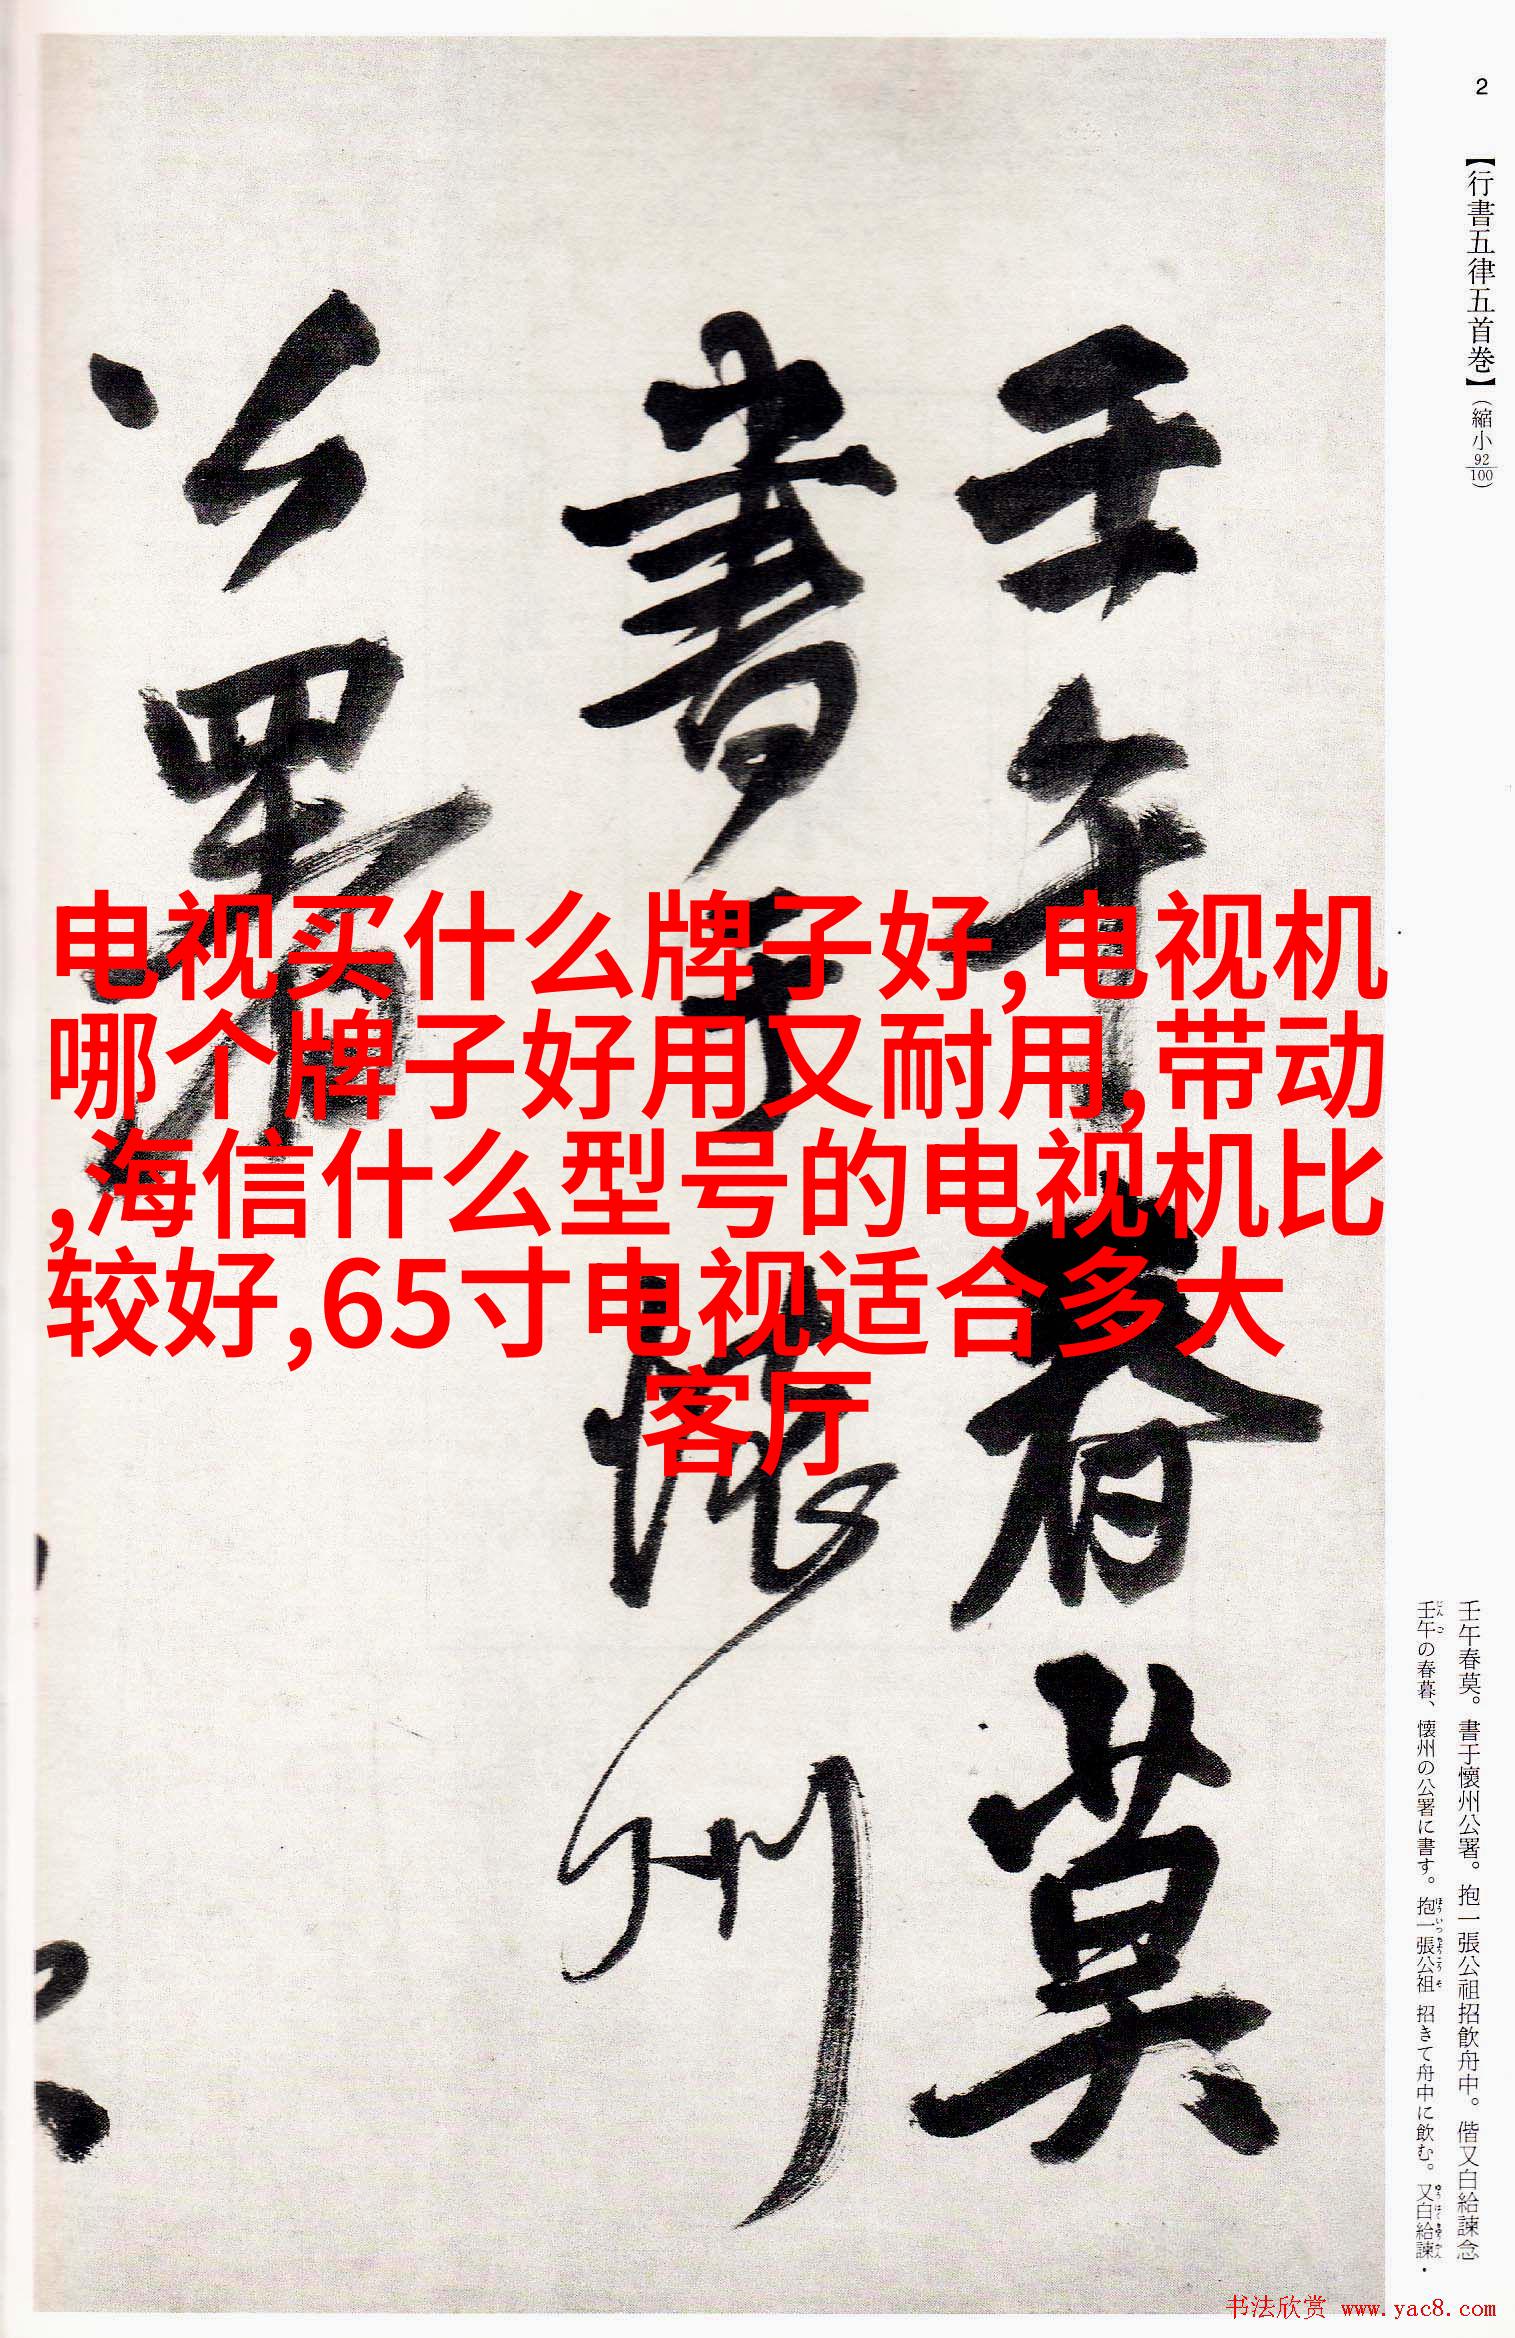 2
【行書五律五首巻】(縮小92/100)
壬午春莫
書于懷州
公署
电视买什么牌子好,电视机
哪个牌子好用又耐用,带动
,海信什么型号的电视机比
较好,65寸电视适合多大
客厅
壬午春莫。書于懷州公署。抱一張公祖招飲舟中。偕又白給諫念
壬午の春暮、懐州の公署に書す。抱一張公祖 招きて舟中に飲む。又白給諫・
书法欣赏 www.yac8.com